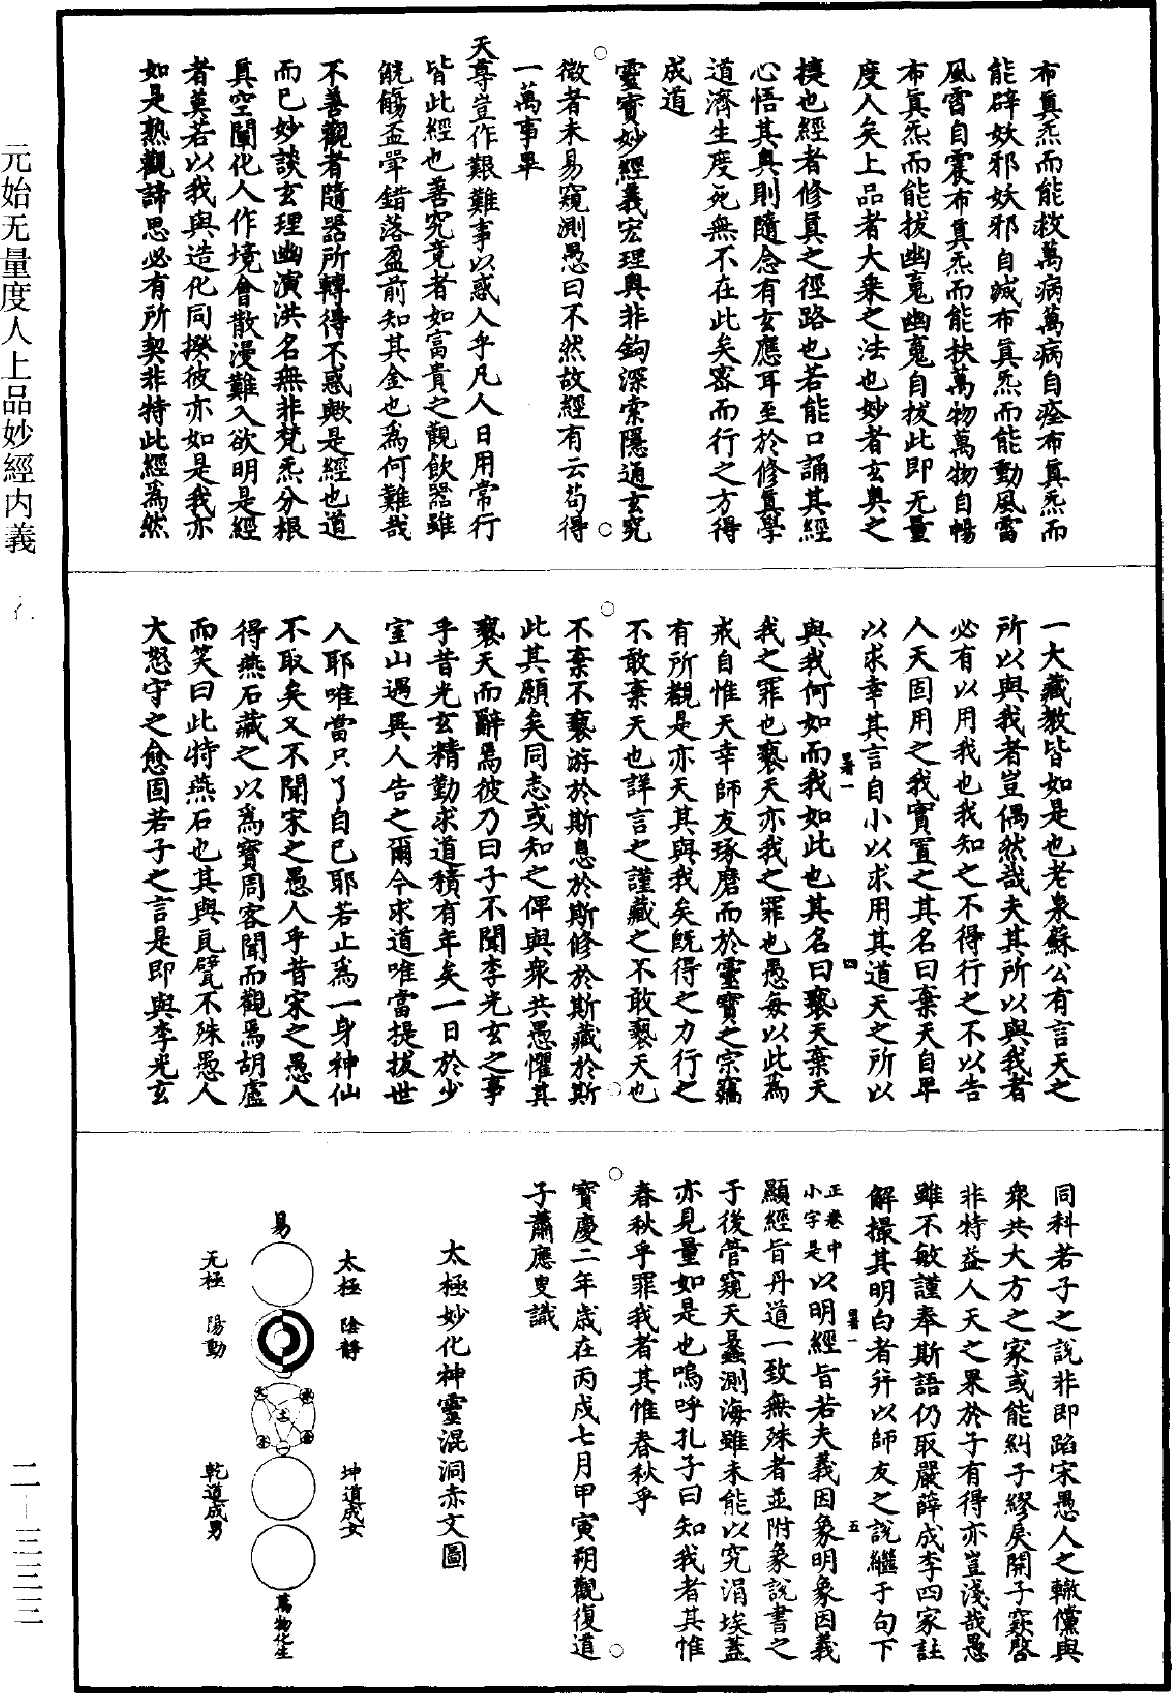 布眞炁而能救萬病萬病自痊布眞炁而
能辟妖邪妖邪自滅布眞炁而能動風雷
風雷自震布眞炁而能扶萬物萬物自暢
布眞炁而能拔幽䰟幽䰟自拔此即无量
度人矣上品者大乘之法也妙者玄奧之
㨗也經者修眞之徑路也若能口誦其經
心悟其奧則隨念有玄應耳至於修眞學
道濟生度死無不在此矣密而行之方得
成道
靈寶妙經義宏理奧非鈎深索隱通玄究
微者未易窺測愚曰不然故經有云茍得
一萬事畢
天尊豈作艱難事以惑人乎凡人日用常行
皆此經也善究竟者如富貴之觀飲器雖
觥觴盃斝錯落盈前知其金也爲何難哉
不善觀者隨器所轉得不惑歟是經也道
而已妙談玄理幽演洪名無非梵炁分根
眞空闡化人作境會散漫難入欲明是經
者莫若以我與造化同揆彼亦如是我亦
如是熟觀諦思必有所契非特此經爲然
一大藏教皆如是也老泉蘇公有言天之
所以與我者豈偶然哉夫其所以與我者
必有以用我也我知之不得行之不以告
人天固用之我實置之其名曰棄天自卑
以求幸其言自小以求用其道天之所以
與我何如而我如此也其名曰褻天棄天
我之罪也褻天亦我之罪也愚每以此爲
戒自惟天幸師友琢磨而於靈寶之宗竊
有所觀是亦天其與我矣旣得之力行之
不敢棄天也詳言之謹藏之不敢褻天也
不棄不褻游於斯息於斯修於斯藏於斯
此其願矣同志或知之俾與衆共愚懼其
褻天而辭焉彼乃曰子不聞李光玄之事
乎昔光玄精勤求道積有年矣一日於少
室山遇異人告之爾今求道唯當提拔世
人耶唯當只了自己耶若止爲一身神仙
不取矣又不聞宋之愚人乎昔宋之愚人
得燕石藏之以爲寶周客聞而觀焉胡盧
而笑曰此特燕石也其與瓦甓不殊愚人
大怒守之愈固若子之言是即與李光玄
同科若子之說非即蹈宋愚人之轍儻與
衆共大方之家或能糾子繆戾開子窾啓
非特益人天之果於子有得亦豈淺哉愚
雖不敏謹奉斯語仍取嚴薛成李四家註
解撮其明白者并以師友之說繼于句下
正卷中小字是以明經旨若夫義因象明象因義
顯經旨丹道一致無殊者並附象說書之
于後管窺天蠡測海雖未能以究涓埃蓋
亦見量如是也嗚呼孔子曰知我者其惟
春秋乎罪我者其惟春秋乎
寶慶二年歲在丙戌七月甲寅朔觀復道
子蕭應叟識
太極妙化神靈混洞赤文圖
易
太極
无極
陰靜
陽動
火
水
土
金
木
坤道成女
乾道成男
萬物化生
元始无量度人上品妙經内義
二—三三三